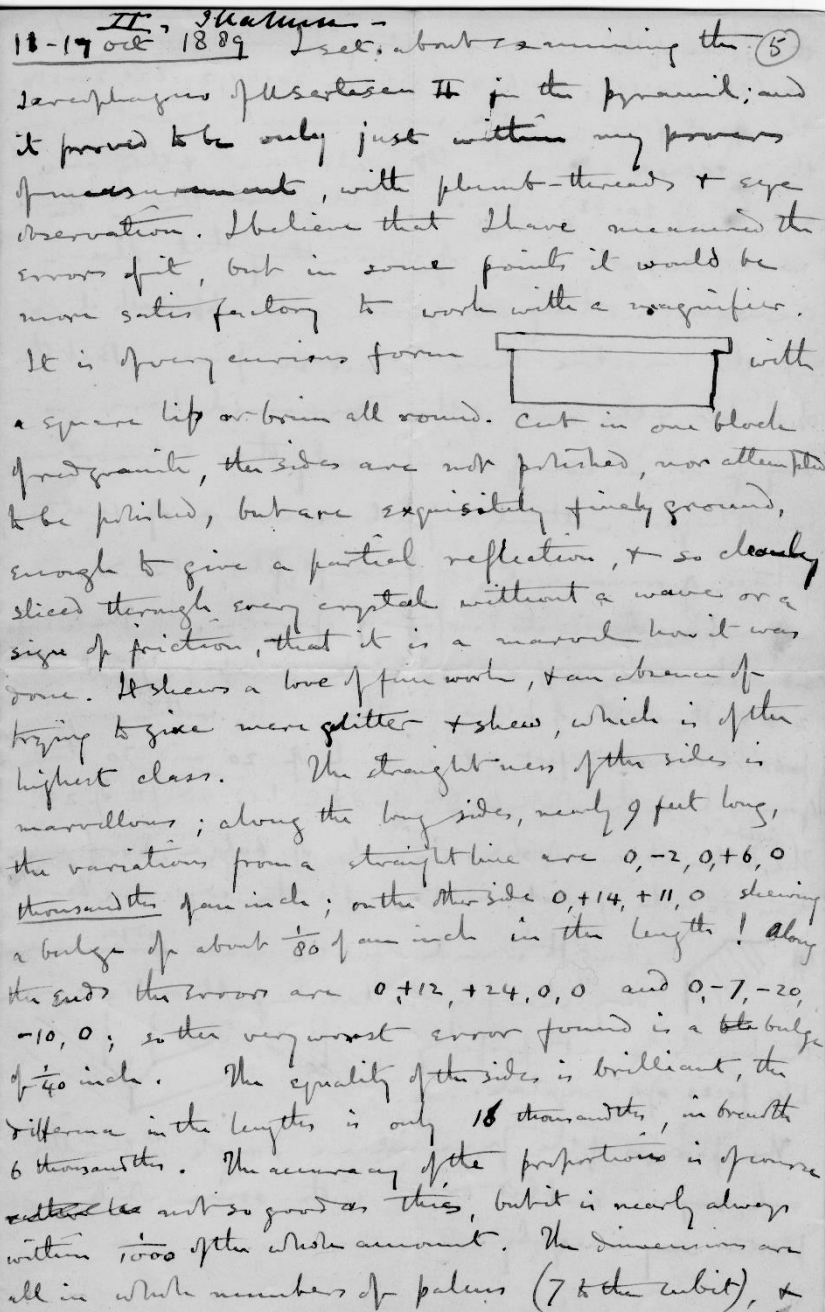 II, Illahun -
11-17 Oct 1889 I set about examining the (5)
sarcophagus of Usertesen II in the pyramid; and
it proved to be only just within my powers
of measurement, with plumb-threads & eye
observation. I believe that I have measured the
errors of it, but in some points it would be
more satisfactory to work with a magnifier.
It is of very curious form with
a square lip or brim all round. Cut in one block
of red granite, the sides are not polished, nor attempted
to be polished, but are exquisitely finely ground,
enough to give a partial reflection, & so cleanly
sliced through every crystal without a wave or a
sign of friction, that it is a marvel how it was
done. It shews a love of fine work, & an absence of
trying to give mere glitter & shew, which is of the
highest class. The straightness of the sides is
marvellous; along the long sides, nearly 9 feet long,
the variations from a straight line are 0,-2,0,+6,0
thousandths of an inch; on the other side 0,+14,+11,0 shewing
a bulge of about 1/80 of an inch in the length! Along
the ends the errors are 0,+12,+24,0,0 and 0,-7,-20,
-10,0; so the very worst error found is a bulge
of 1/40 inch. The equality of the sides is brilliant, the
difference in the lengths is only thousandths, in breadth
6 thousandths. The accuracy of the proportions is of course
not so good as this, but it is nearly always
within 1/1000 of the whole amount. The dimensions are
all in whole numbers of palms (7 to the cubit), &